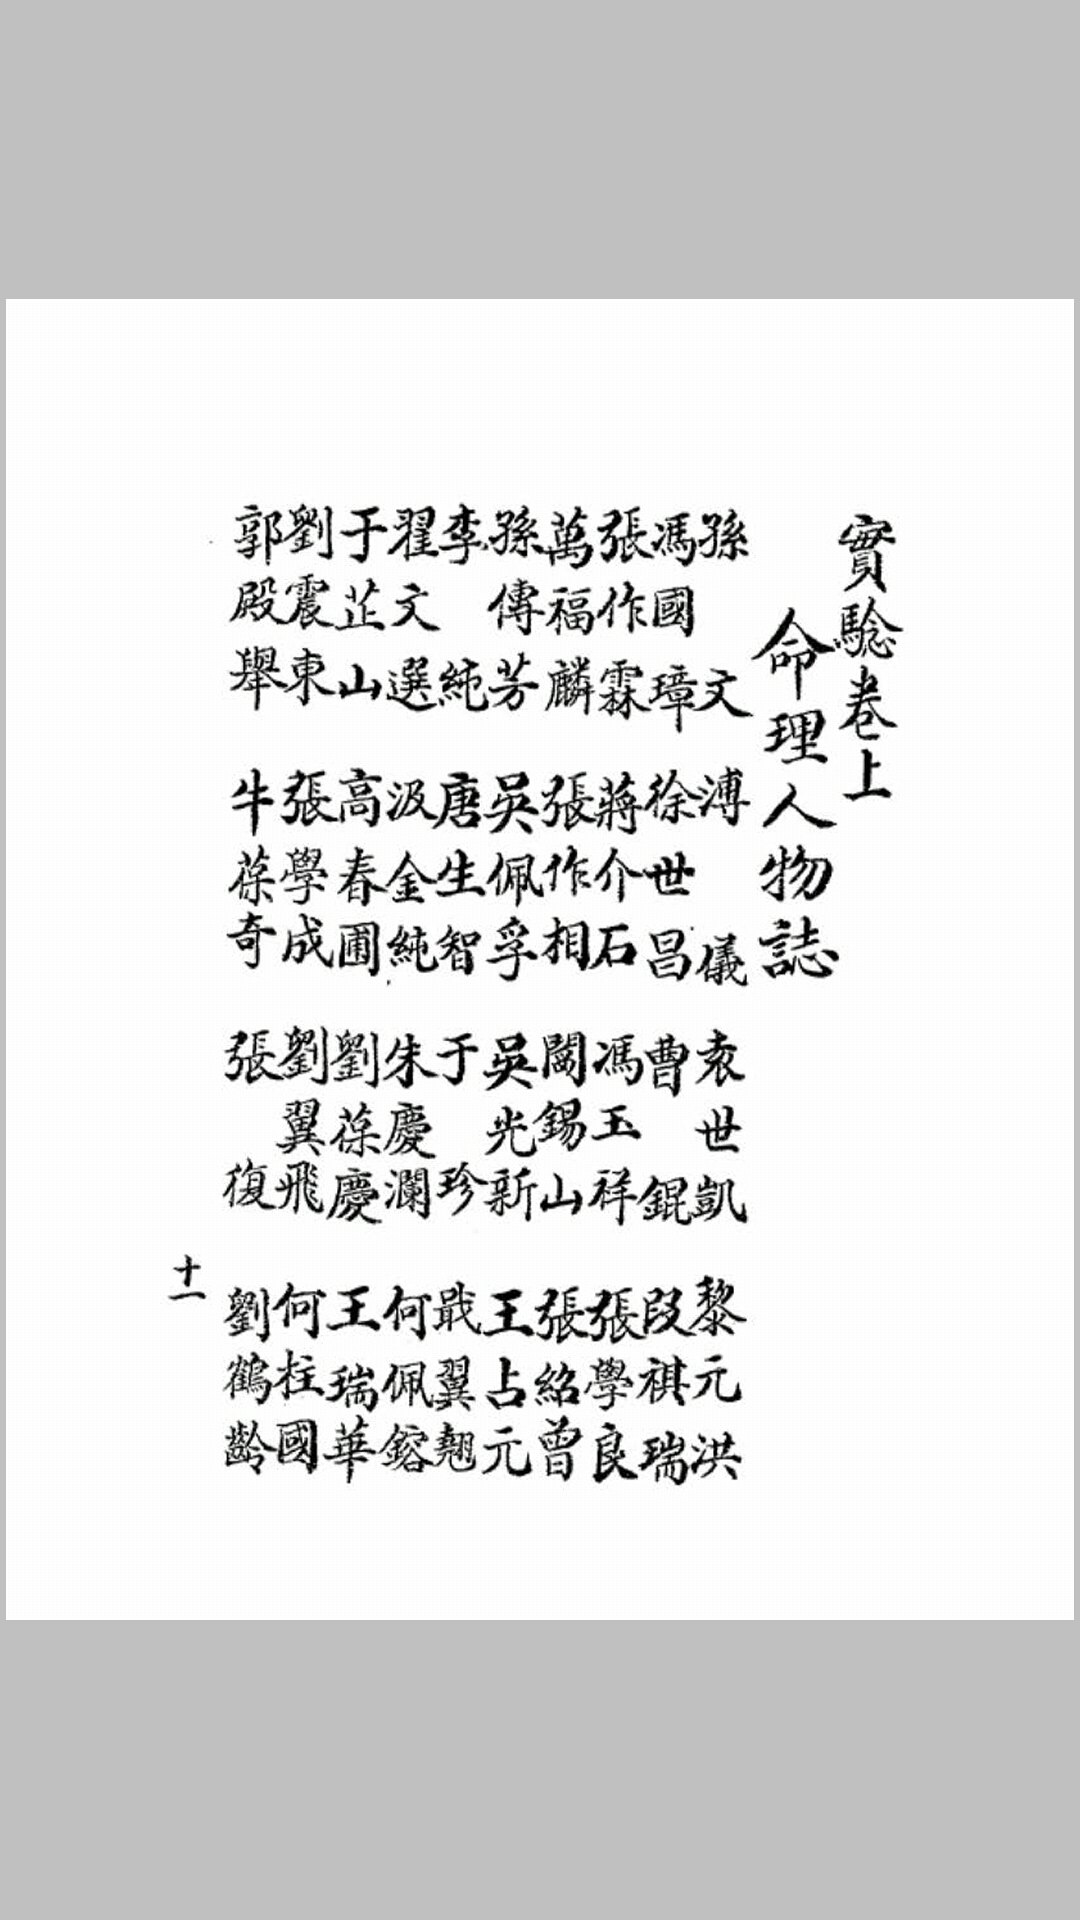 實驗卷上
命理人物誌
孫文 溥儀 袁世凱 黎元洪
馮國璋 徐世昌 曹錕 段祺瑞
張作霖 蔣介石 馮玉祥 張學良
萬福麟 張作相 閻錫山 張紹曾
孫傳芳 吳佩孚 吳光新 王占元
李純 唐生智 于珍 戢翼翹
翟文選 汲金純 朱慶瀾 何佩鎔
于芷山 高春圃 劉葆慶 王瑞華
劉震東 張學成 劉翼飛 何柱國
郭殿舉 牛葆奇 張復 劉鶴齡
十一